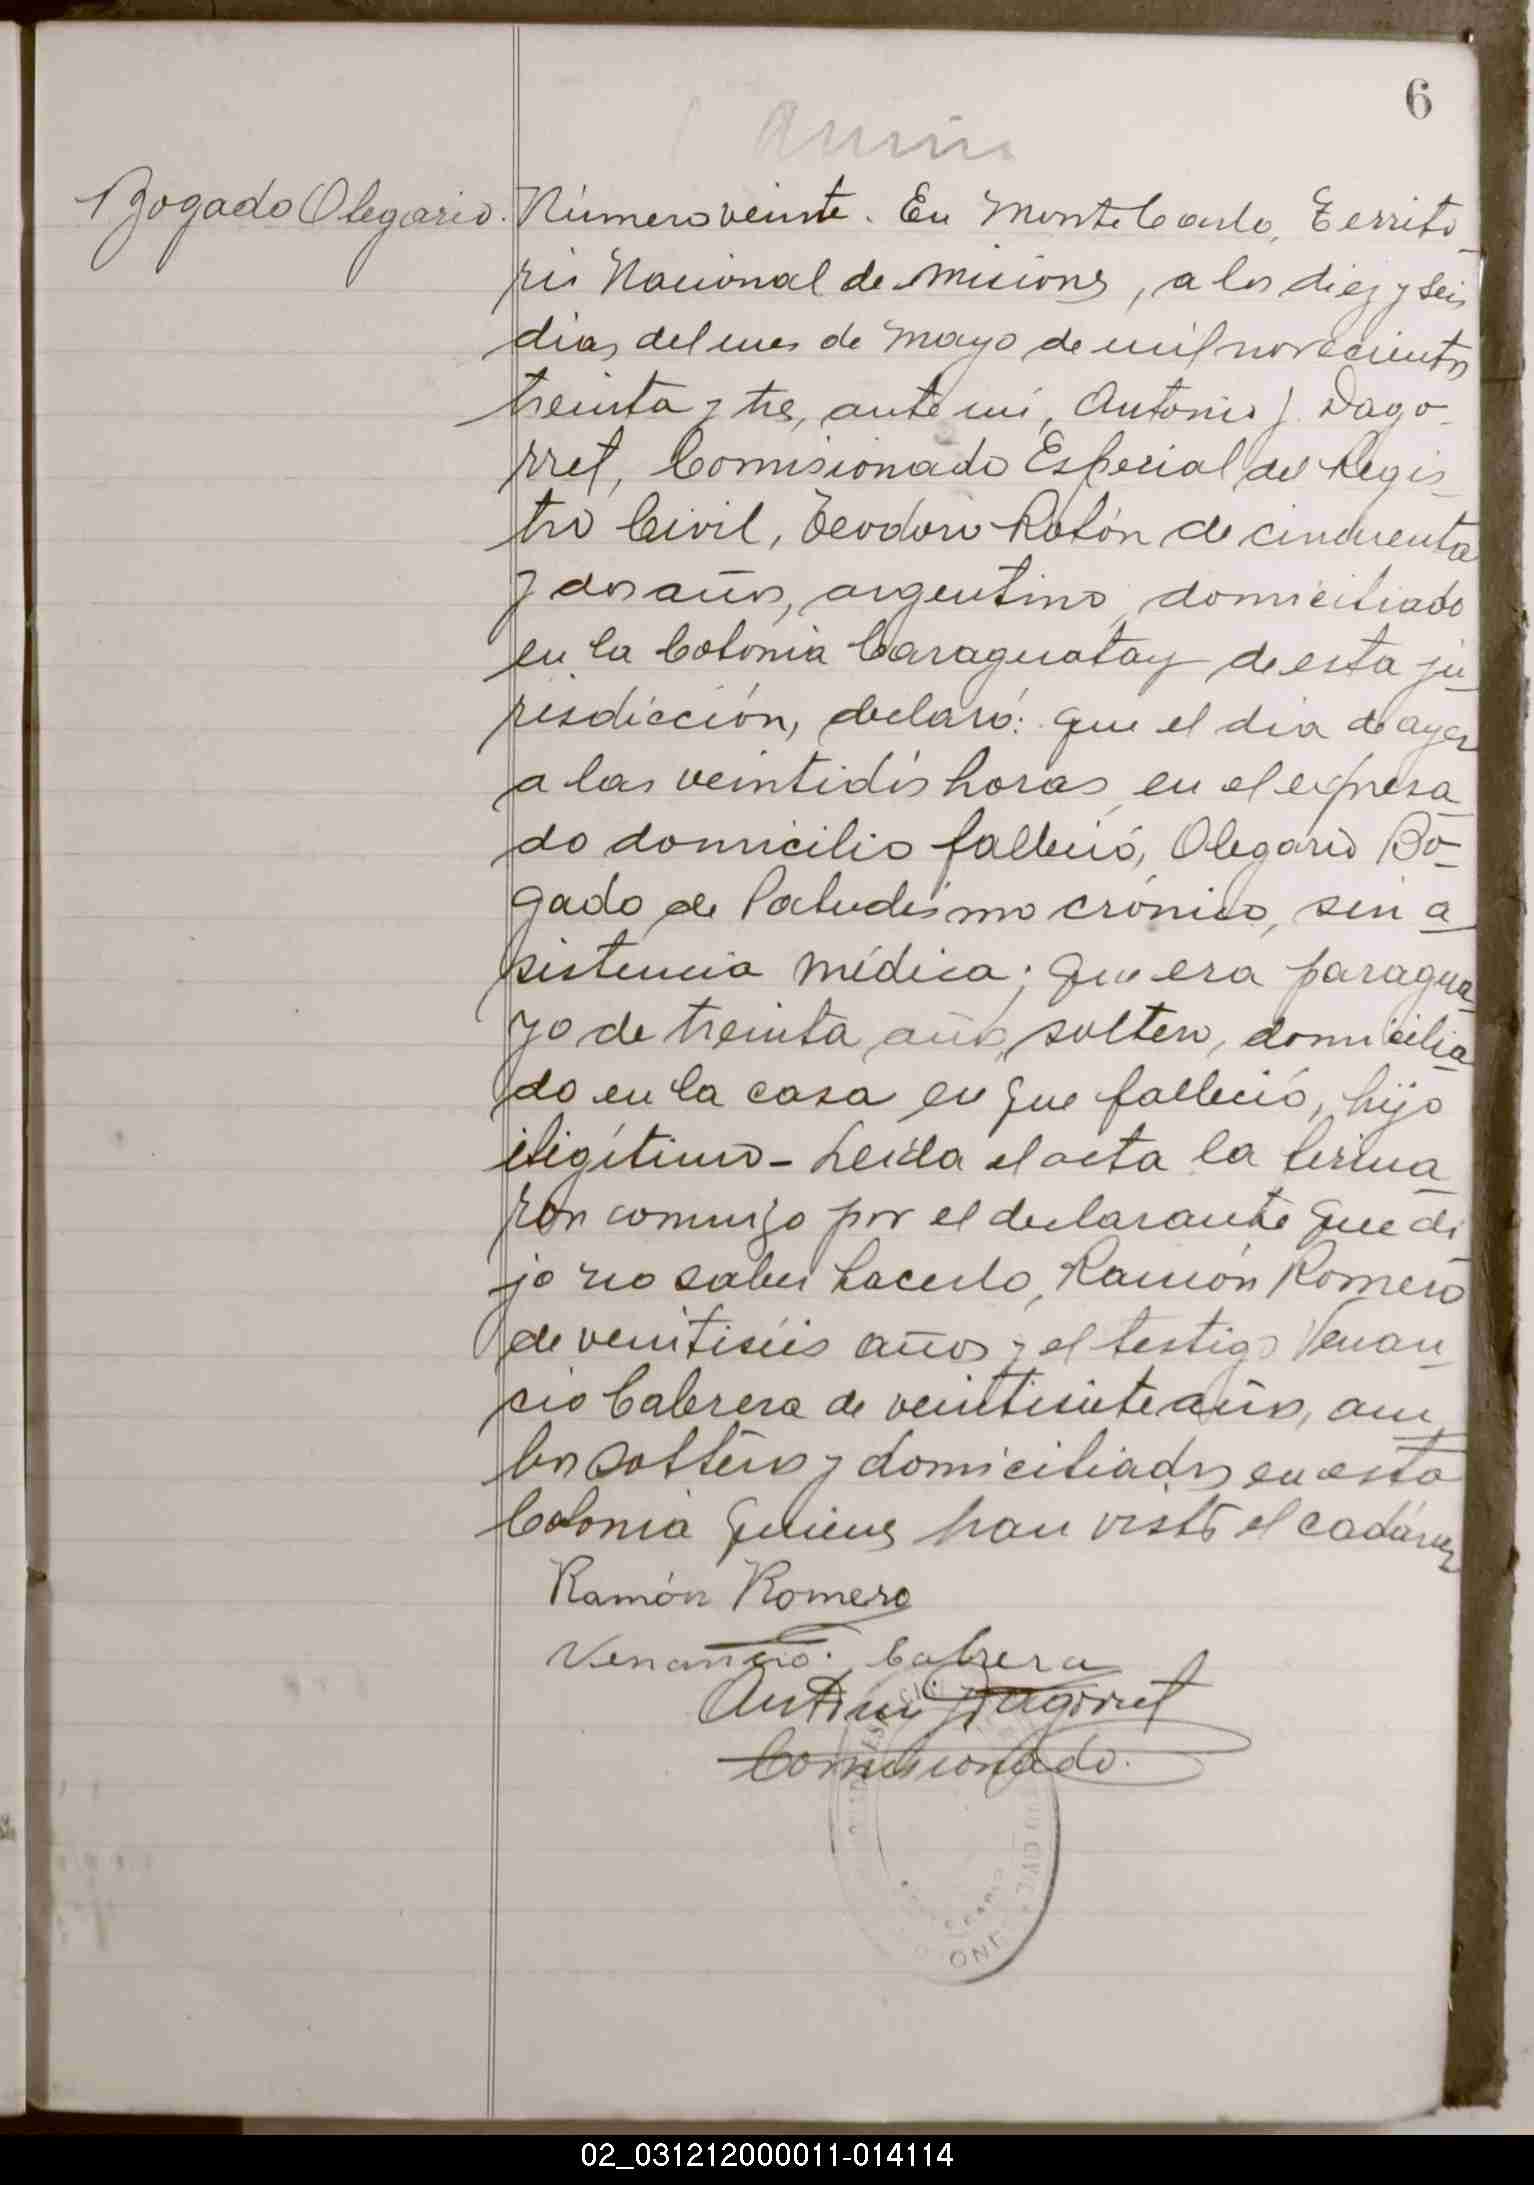 6
Bogado Olegario.
Número veinte. En Monte Carlo, Territo-
rio Nacional de Misiones, a los diez y seis
dias del mes de Mayo de mil novecientos
treinta y tres, ante mí, Antonio J. Dago-
rret, Comisionado Especial del Regis-
tro Civil, Teodoro Rolón de cincuenta
y dos años, argentino, domiciliado
en la Colonia Caraguatay de esta ju-
risdicción, declaró: Que el dia de ayer
a las veintidós horas, en el expresa-
do domicilio falleció, Olegario Bo-
gado de Paludismo crónico, sin a-
sistencia médica; Que era paragua-
yo de treinta años, soltero, domicilia-
do en la casa en que falleció, hijo
ilegítimo - Leída el acta la firma-
ron conmigo por el declarante que di-
jo no saber hacerlo, Ramón Romero
de veintiséis años y el testigo Venan-
cio Cabrera de veintisiete años, am-
bos solteros y domiciliados en esta
Colonia quienes han visto el cadáver
Ramón Romero
Venancio. Cabrera
Antonio J Dagorret
Comisionado.
02_031212000011-014114